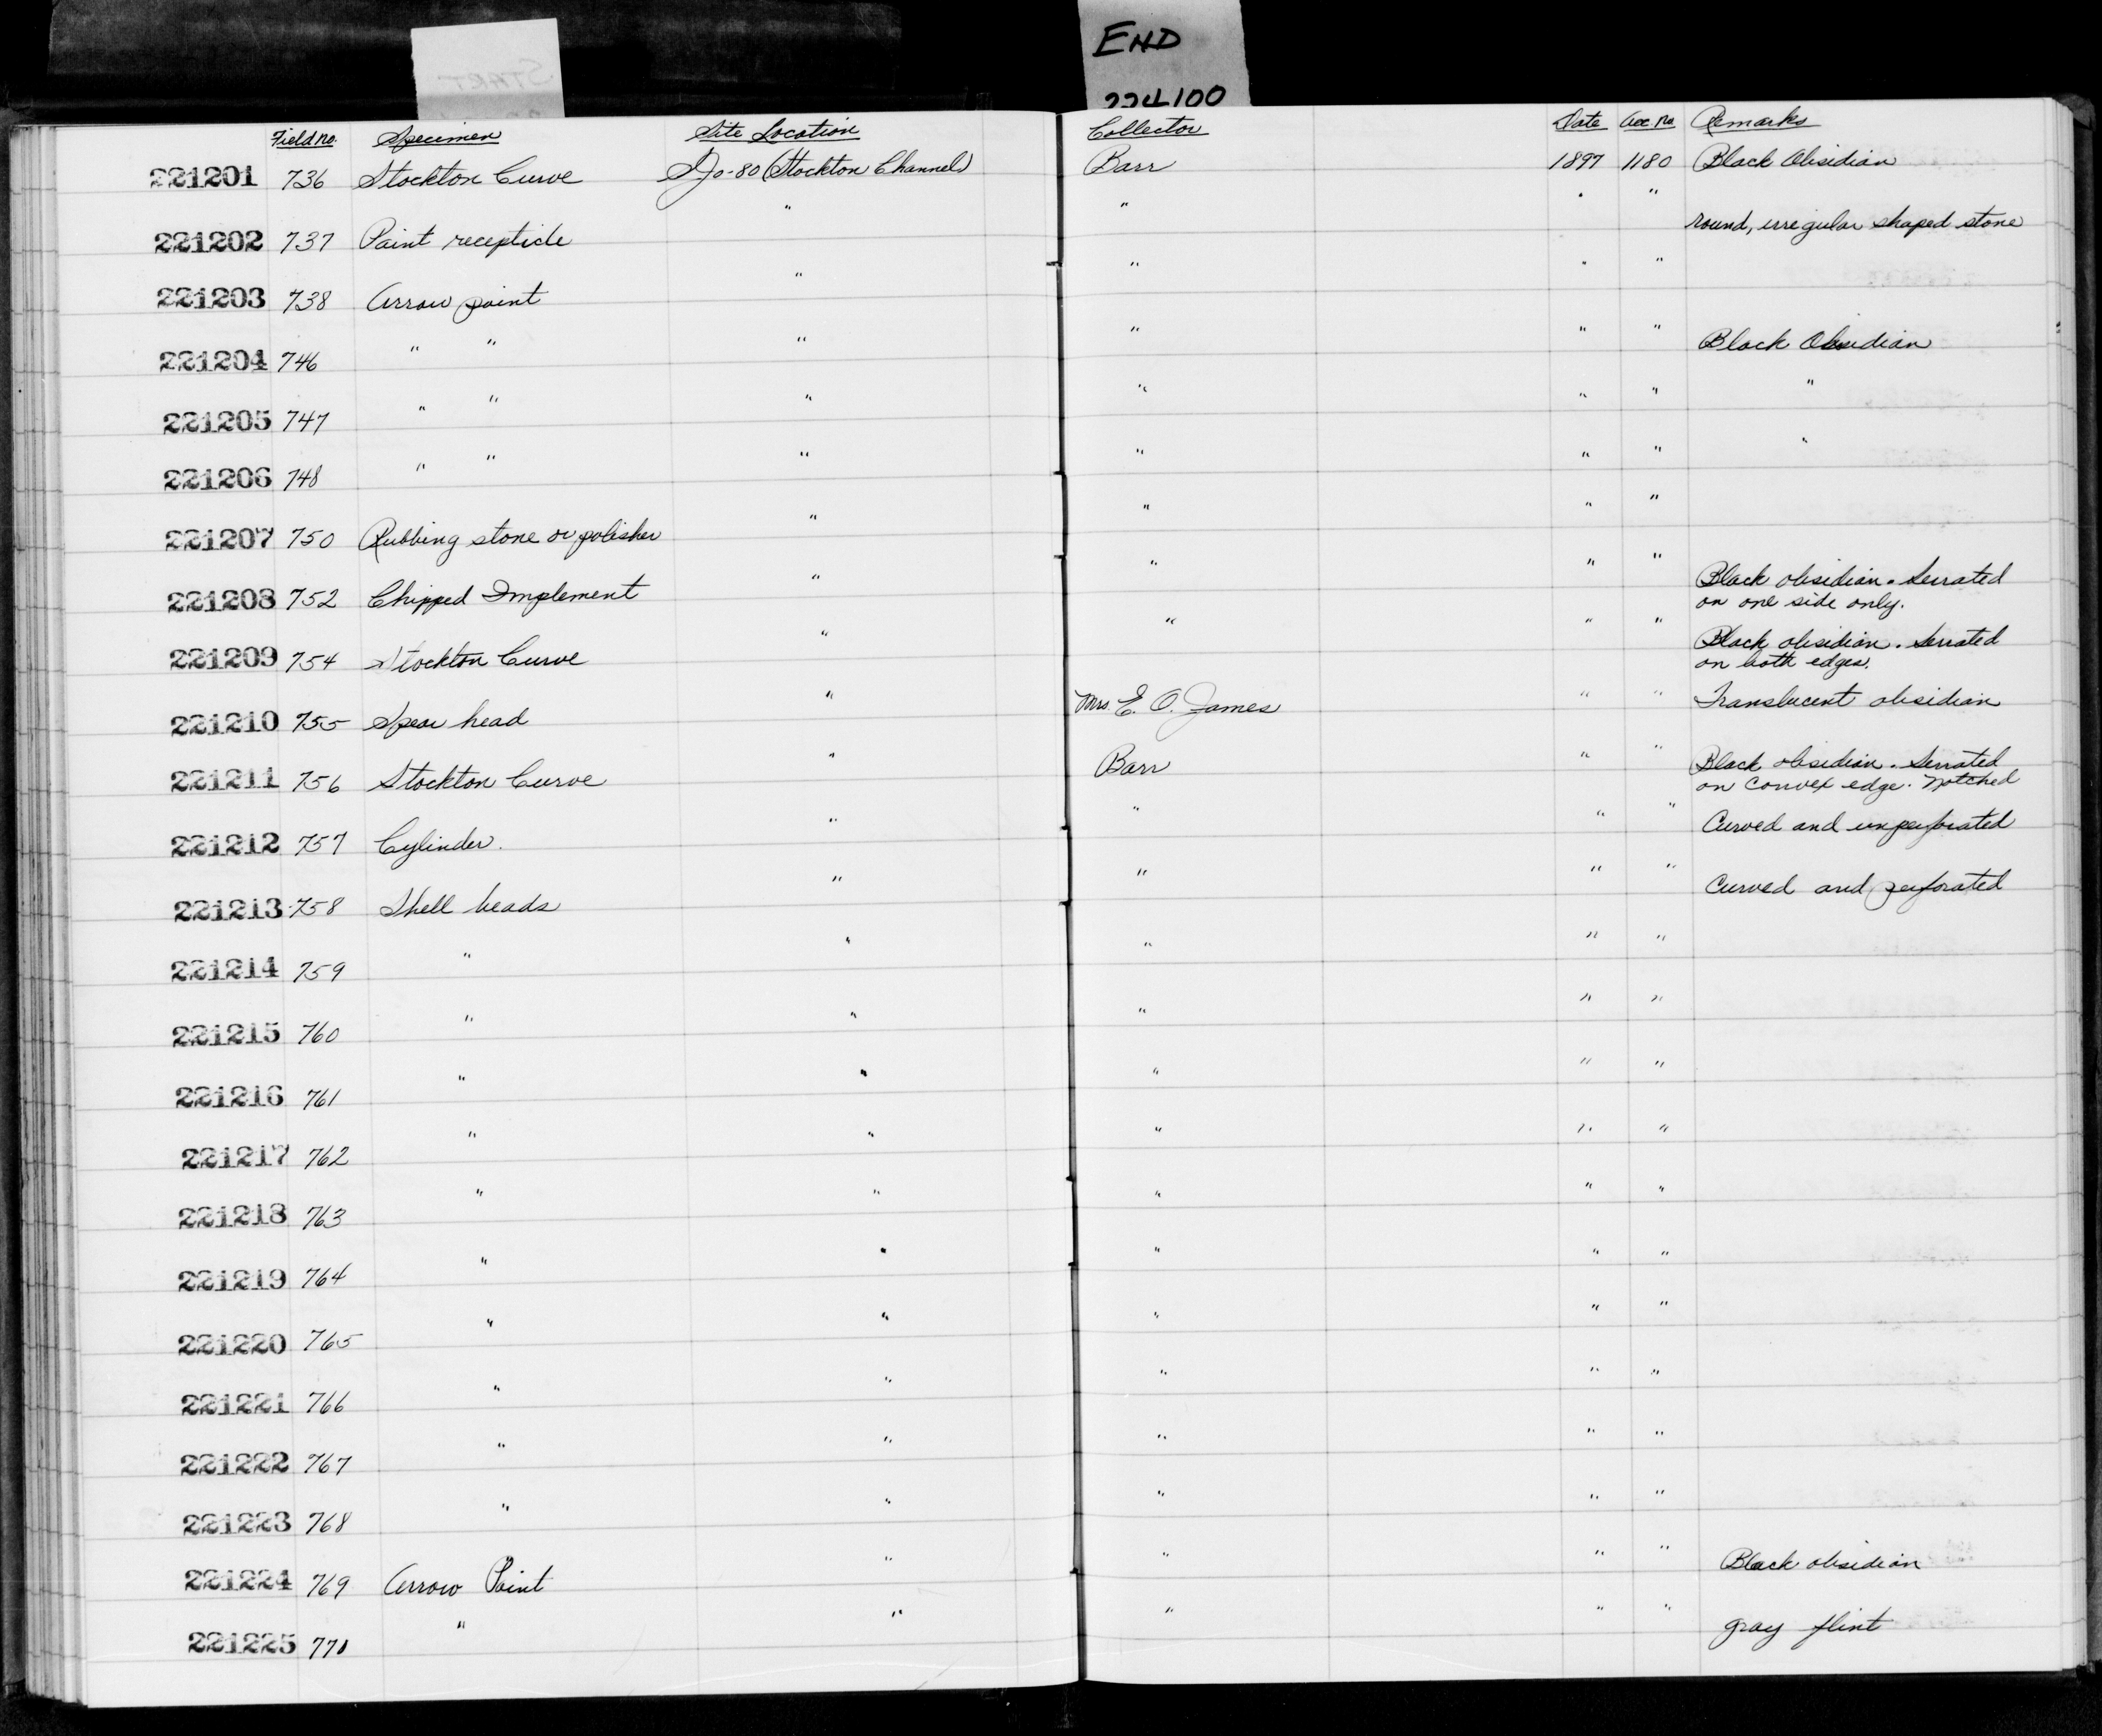 END
224100
START
Field no. Specimen Site Location Collector Date Acc no. Remarks
221201 736 Stockton Curve SJo-80 (Stockton Channel) Barr 1897 1180 Black Obsidian
221202 737 Paint recepticle " " " " round, irregular shaped stone
221203 738 Arrow point " " " "
221204 746 " " " " " " Black Obsidian
221205 747 " " " " " " "
221206 748 " " " " " " "
221207 750 Rubbing stone or polisher " " " "
221208 752 Chipped Implement " " " " Black obsidian. Serrated
on one side only.
221209 754 Stockton Curve " " " " Black obsidian. Serrated
on both edges.
221210 755 Spear head " Mrs. E. O. James " " Translucent obsidian
221211 756 Stockton Curve " Barr " " Black obsidian. Serrated
on convex edge. Notched
221212 757 Cylinder. " " " " Curved and unperforated
221213 758 Shell beads " " " " Curved and perforated
221214 759 " " " " "
221215 760 " " " " "
221216 761 " " " " "
221217 762 " " " " "
221218 763 " " " " "
221219 764 " " " " "
221220 765 " " " " "
221221 766 " " " " "
221222 767 " " " " "
221223 768 " " " " "
221224 769 Arrow Point " " " " Black obsidian
221225 770 " " " " " gray flint